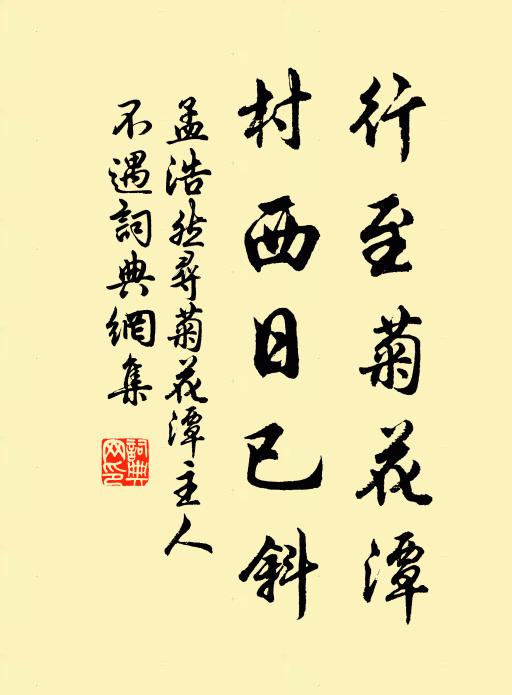 行至菊花潭
村西日已斜
孟浩然尋菊花潭主人
不遇詞典網集
詞典
网印